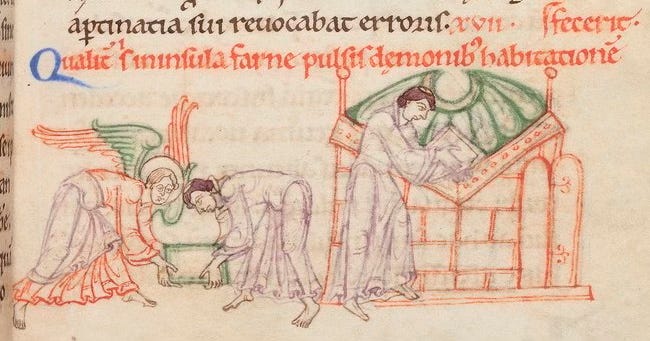 a ptinatia sui revocabat erroris. xvii. s fecerit.
Qualit s in insula farne pulsis demonib' habitatione